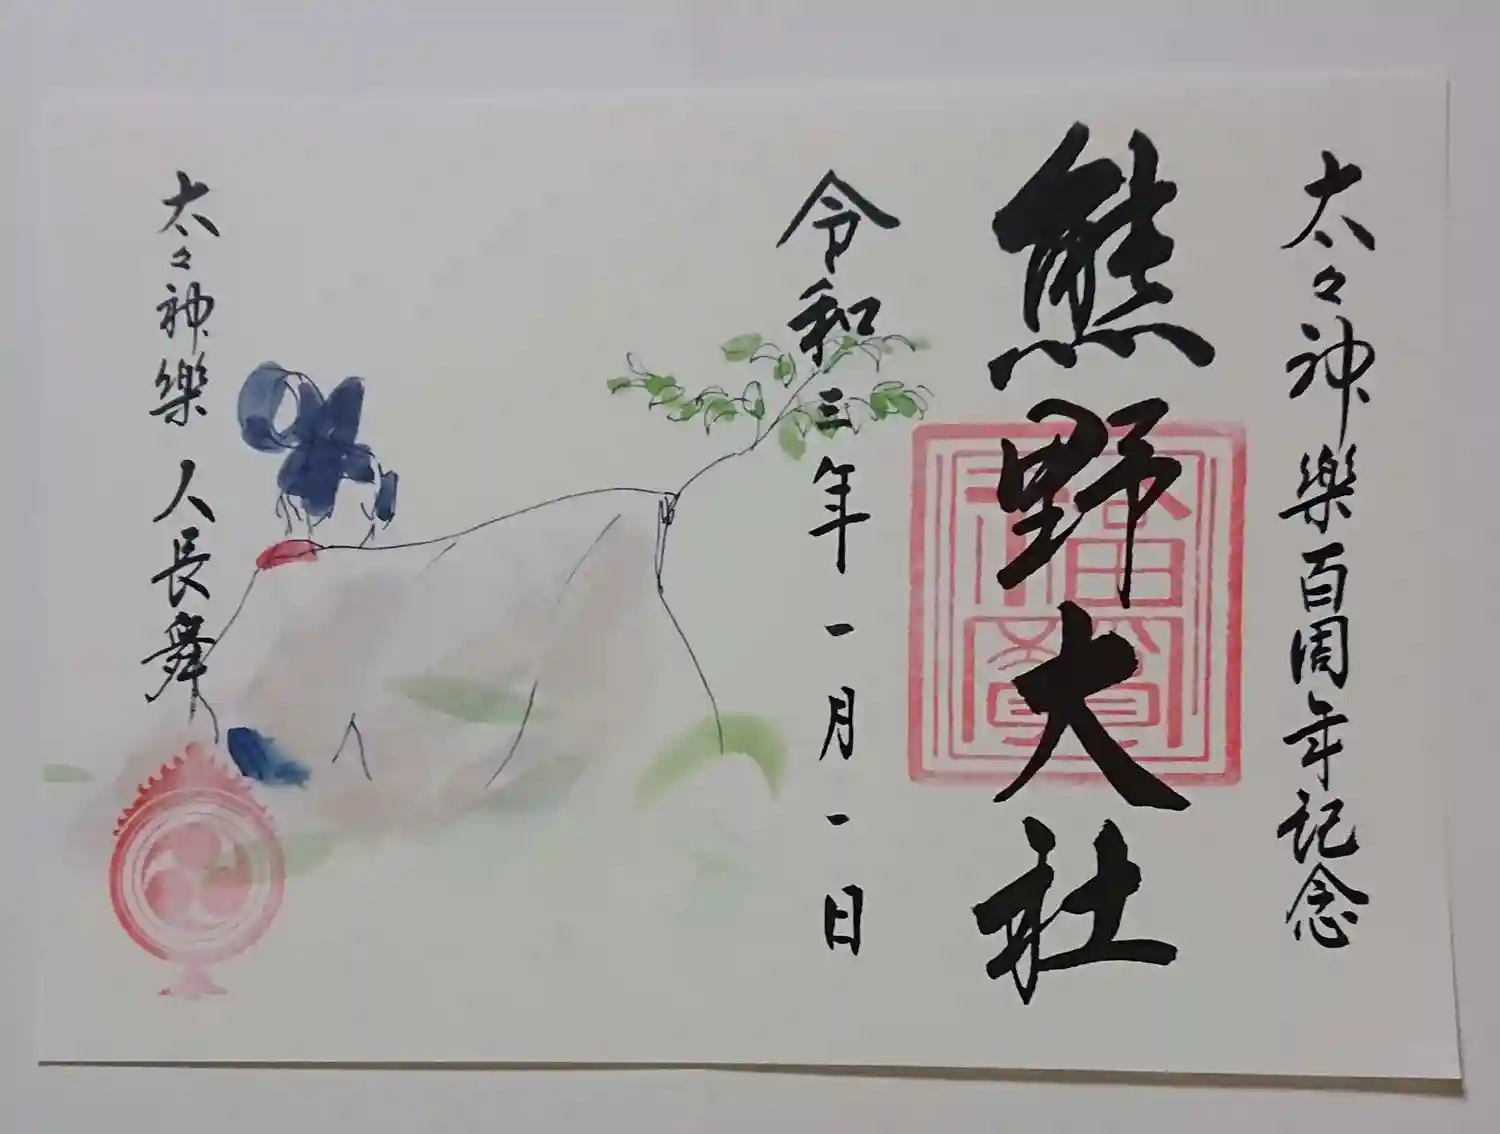 太々神樂百周年記念
熊野大社
令和三年一月一日
太々神樂 人長舞